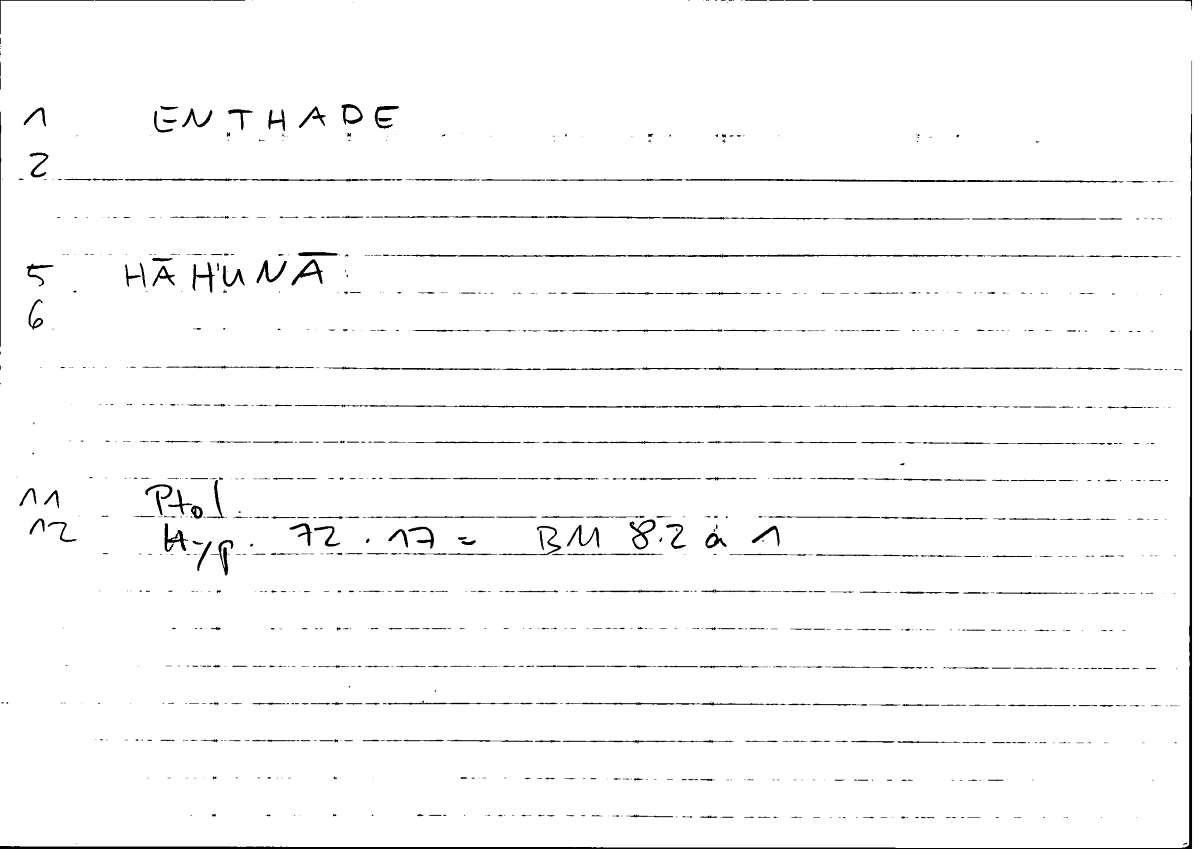 1 ENTHADE
2
5 HĀHUNĀ
6
11 Ptol.
12 Hyp. 72.17 = BM 8.2 à 1